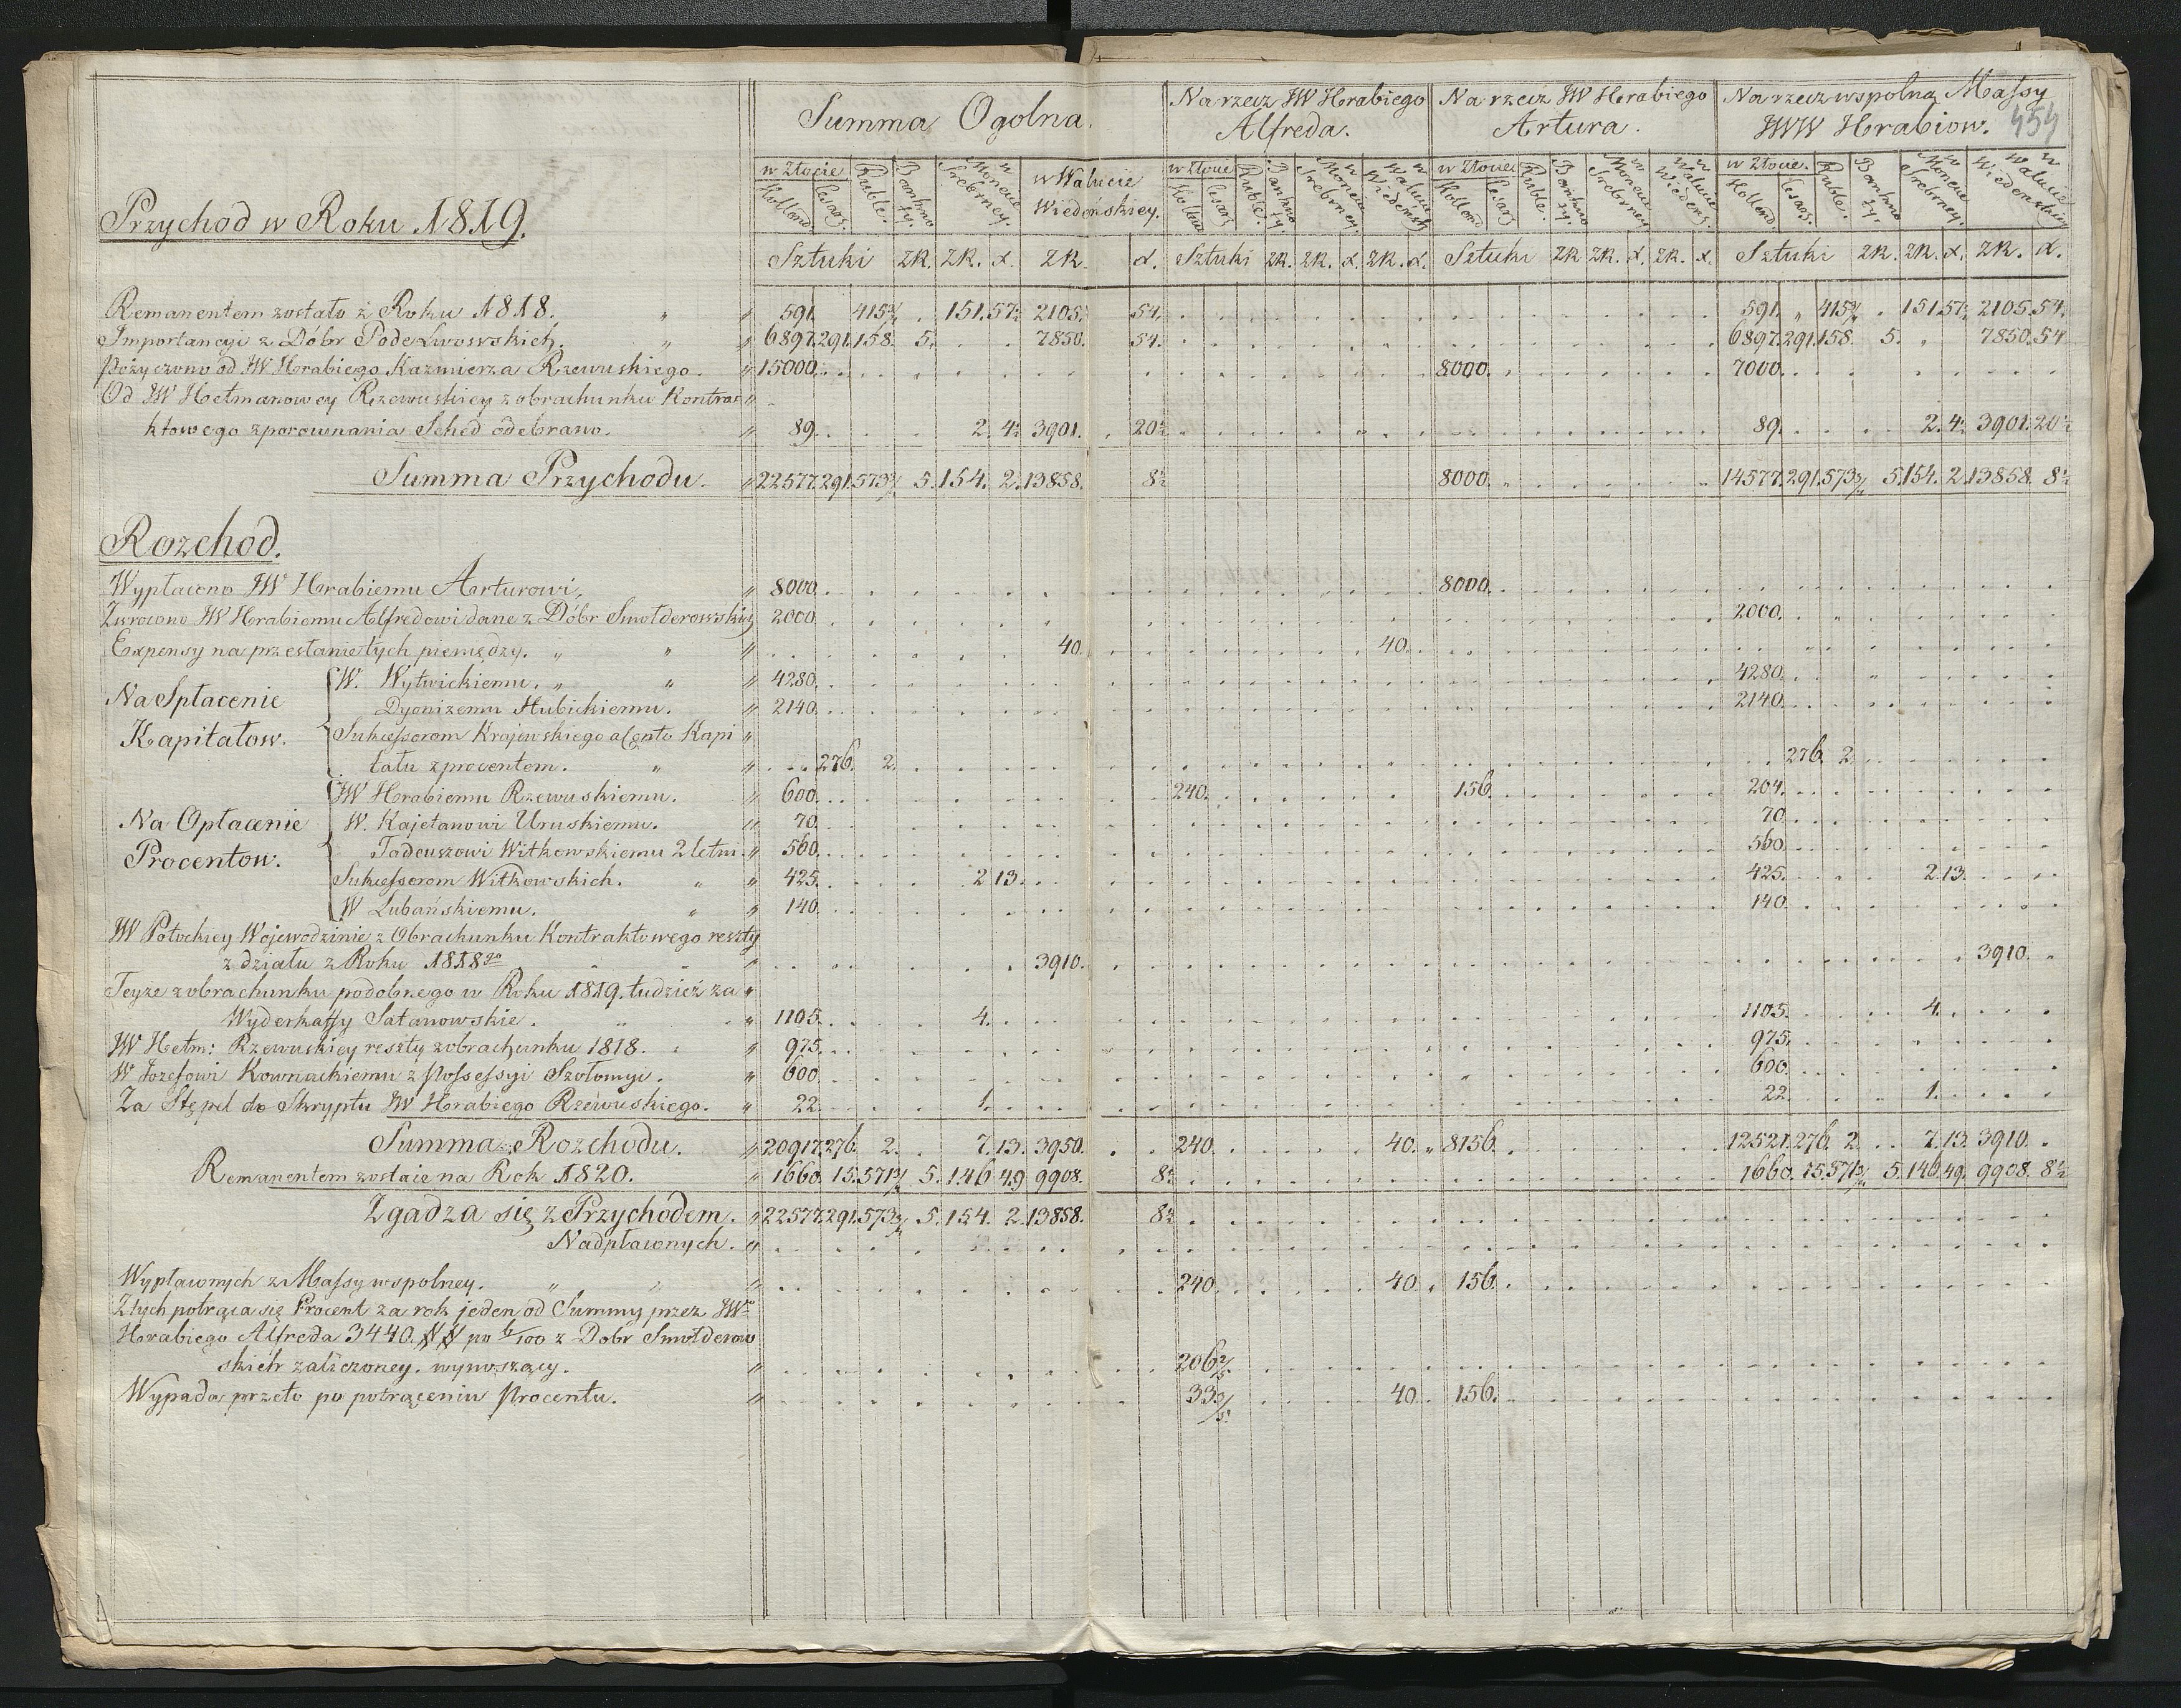 Summa Ogolna.
Na rzecz JW Hrabiego Alfreda.
Na rzecz JW Hrabiego Artura.
Na rzecz wspolną Massy JWW Hrabiow. 454
w Złocie Ruble. Bankno ty. w Monecie Srebrney. w Walucie Wiedeńskiey.
w Złocie Ruble. Bankno ty. w Monecie Srebrney. w Walucie Wiedeńsk
w Złocie Ruble. Bankno ty. w Monecie Srebrney w Walucie Wiedeńs.
w Złocie. Ruble. Bankno ty. w Monecie Srebrney. w Walucie Wiedenskiey
Holland. Cesars. Holland Cesars Holland Cesars Holland. Cesars.
Przychod w Roku 1819.
Sztuki ZR. ZR. x. ZR. x. Sztuki ZR. ZR. x. ZR. x. Sztuki ZR ZR. x. ZR. x. Sztuki ZR. ZR. x. ZR. x.
Remanentem zostało z Roku 1818. 591. 415 3/4 151. 57 1/2 2105. 54. 591. 415 3/4 151. 57 1/2 2105. 54.
Importancyi z Dóbr PodeLwowskich. 6897. 291. 158. 5. 7850. 54. 6897. 291. 158. 5. 7850. 54
Pożyczono od JW Hrabiego Kazmierza Rzewuskiego. 15000. 8000. 7000.
Od JW Hetmanowey Rzewuskiey z obrachunku Kontra=
ktowego z porownania Sched odebrano. 89. 2. 4 1/2 3901. 20 1/2 89. 2. 4 1/2 3901. 20 1/2
Summa Przychodu. 22577. 291. 573 3/4 5. 154. 2. 13858. 8 1/2 8000. 14577. 291. 573 3/4 5. 154. 2. 13858. 8 1/2
Rozchod.
Wypłacono JW Hrabiemu Arturowi. 8000. 8000.
Zwrocono JW Hrabiemu Alfredowi dane z Dóbr Smołderowskich 2000. 2000.
Expensy na przesłanie tych pieniędzy. 40. 40.
Na Spłacenie Kapitałow.
W. Wytwickiemu. 4280. 4280.
Dyonizemu Hubickiemu. 2140. 2140.
Sukcessorom Krajewskiego a Conto Kapi
tału z procentem. 276. 2. 276. 2.
Na Opłacenie Procentow.
JW Hrabiemu Rzewuskiemu. 600. 240. 156. 204.
W. Kajetanowi Uruskiemu. 70. 70.
Tadeuszowi Witkowskiemu 2 letni. 560. 560.
Sukcessorom Witkowskich. 425. 2. 13. 425. 2. 13.
W Lubańskiemu. 140. 140.
JW Potockiey Wojewodzinie z Obrachunku Kontraktowego reszty
z działu z Roku 1818go 3910. 3910.
Teyże z obrachunku podobnego w Roku 1819. tudzież za
Wyderkaffy Satanowskie. 1105. 4. 1105. 4.
JW Hetm: Rzewuskiey reszty z obrachunku 1818. 975. 975.
W Jozefowi Kownackiemu z Possessyi Szołomyi. 600. 600.
Za Stępel do Skryptu JW Hrabiego Rzewuskiego. 22. 1. 22. 1.
Summa Rozchodu. 20917. 276. 2. 7. 13. 3950. 240. 40. 8156. 12521. 276. 2. 7. 13. 3910.
Remanentem zostaie na Rok 1820. 1660. 15. 571 3/4 5. 146. 49 9908. 8 1/2 1660. 15. 571 3/4 5. 146. 49. 9908. 8 1/2
Zgadza się z Przychodem. 22577. 291. 573 3/4 5. 154. 2. 13858. 8 1/2
Nadpłaconych.
Wypłaconych z Massy wspolney. 240. 40. 156.
Z tych potrąca się Procent za rok jeden od Summy przez JWo
Hrabiego Alfreda 3440. ## po 6/100 z Dobr Smołderow
skich zaliczoney. wynoszący. 206 2/5
Wypada przeto po potrąceniu Procentu. 33 3/5 40. 156.